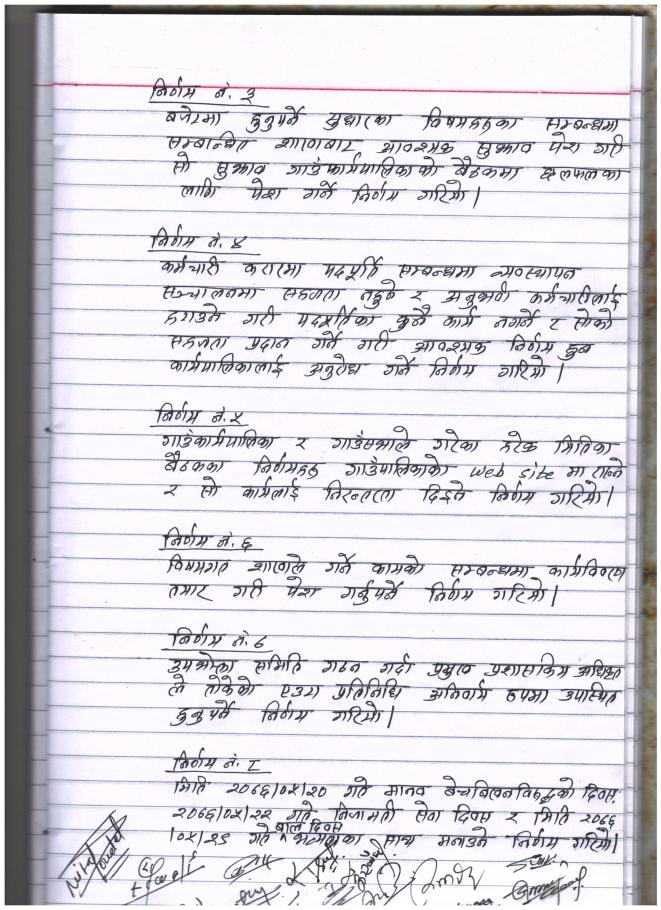 निर्णय नं. ३
बजेटमा हुनुपर्ने सुधारका विषयहरुका सम्बन्धमा
सम्बन्धित शाखाबाट आवश्यक सुझाव पेश गरी
सो सुझाव गाउँकार्यपालिकाको बैठकमा छलफलका
लागि पेश गर्ने निर्णय गरियो।
निर्णय नं. ४
कर्मचारी करारमा पदपूर्ति सम्बन्धमा व्यवस्थापन
सञ्चालनमा सहजता नहुने र अनुभवी कर्मचारीलाई
हटाउने गरी पदपूर्तिका कुनै कार्य नगर्ने र सोको
सहजता प्रदान गर्ने गरी आवश्यक निर्णय हुन
कार्यपालिकालाई अनुरोध गर्ने निर्णय गरियो।
निर्णय नं. ५
गाउँकार्यपालिका र गाउँसभाले गरेका हरेक मितिका
बैठकका निर्णयहरु गाउँपालिकाको web site मा राख्ने
र सो कार्यलाई निरन्तरता दिइने निर्णय गरियो।
निर्णय नं. ६
विषयगत शाखाले गर्ने कामको सम्बन्धमा कार्यविवरण
तयार गरी पेश गर्नुपर्ने निर्णय गरियो।
निर्णय नं. ७
उपभोक्ता समिति गठन गर्दा प्रमुख प्रशासकिय अधिकृत
ले तोकेको एउटा प्रतिनिधि अनिवार्य रुपमा उपस्थित
हुनुपर्ने निर्णय गरियो।
निर्णय नं. ८
मिति २०७६/०५/२० गते मानव बेचबिखनविरुद्धको दिवस,
२०७६/०५/२२ गते निजामती सेवा दिवस र मिति २०७६
/०५/२९ गते बाल दिवस भव्यताका साथ मनाउने निर्णय गरियो।